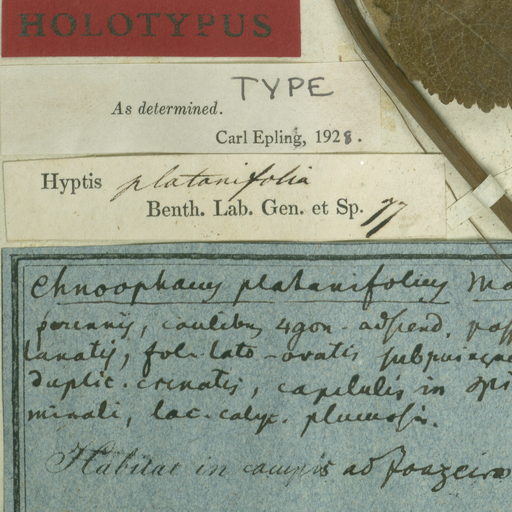 HOLOTYPUS
TYPE
As determined.
Carl Epling, 1928.
Hyptis platanifolia
Benth. Lab. Gen. et Sp. 77
platanifolius
perennis, caulibus 4gon.
lanatis, fol. lato-ovatis
duplic. crenatis, capitulis in spi
minali, lac. calyc. plumosis.
Habitat in campis ad Joazeiro